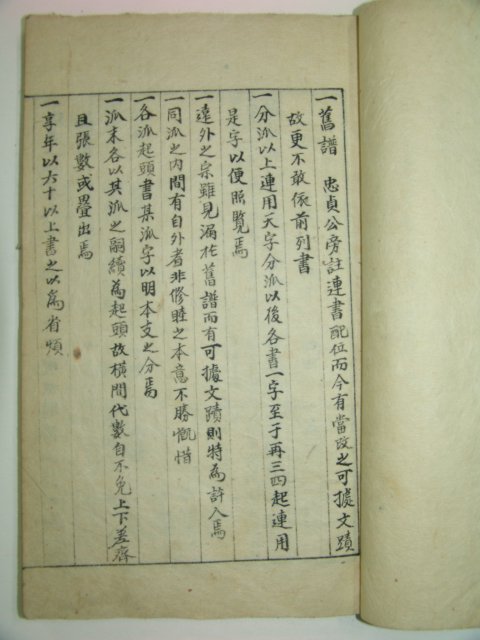 一 舊譜 忠貞公旁註連書配位而今有當改之可據文蹟
故更不敢依前列書
一 分派以上連用天字分派以後各書一字至于再三四起連用
是字以便照覽焉
一 遠外之宗雖見漏於舊譜而有可據文蹟則特為許入焉
一 同派之內間有自外者非修睦之本意不勝慨惜
一 各派起頭書某派字以明本支之分焉
一 派末各以其派之嗣續為起頭故橫間代數自不免上下差齊
且張數或疊出焉
一 享年以六十以上書之以為省煩